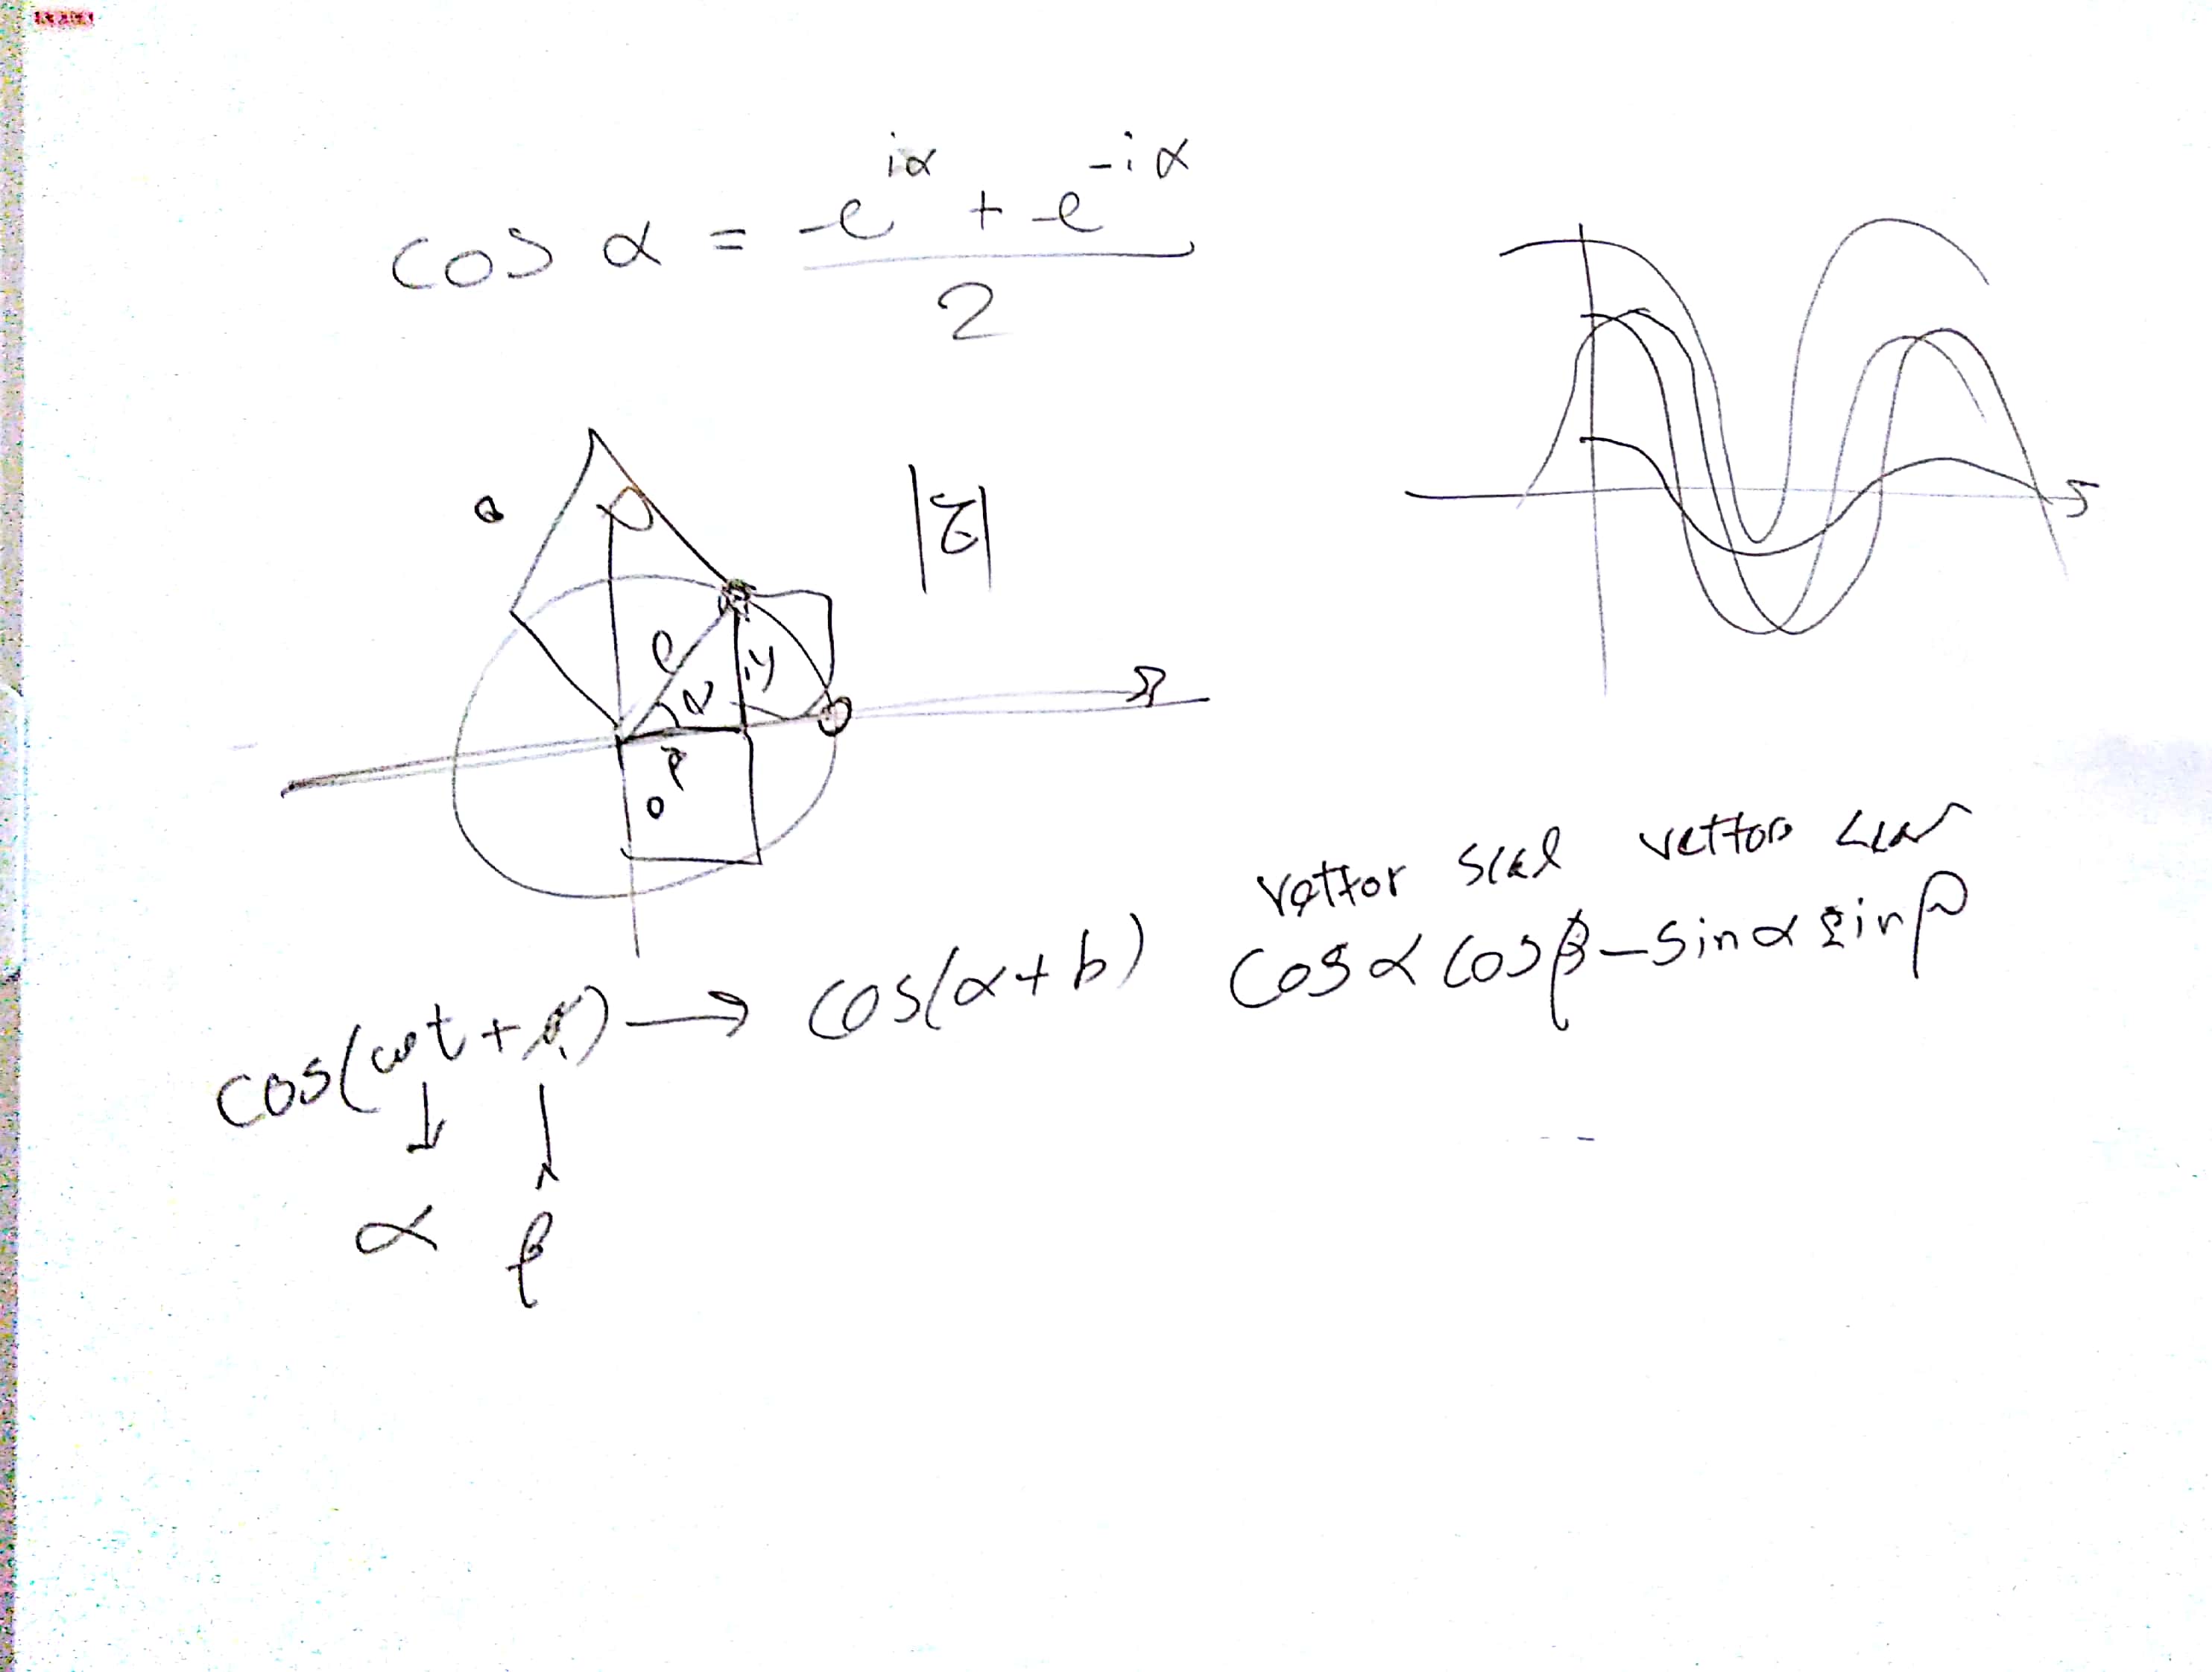 cos α = e^{iα} + e^{-iα} / 2
|z|
ρ
iy
vettor scal vettor scal
cos(ωt + φ) → cos(α+b) cos α cos β - sin α sin β
α β